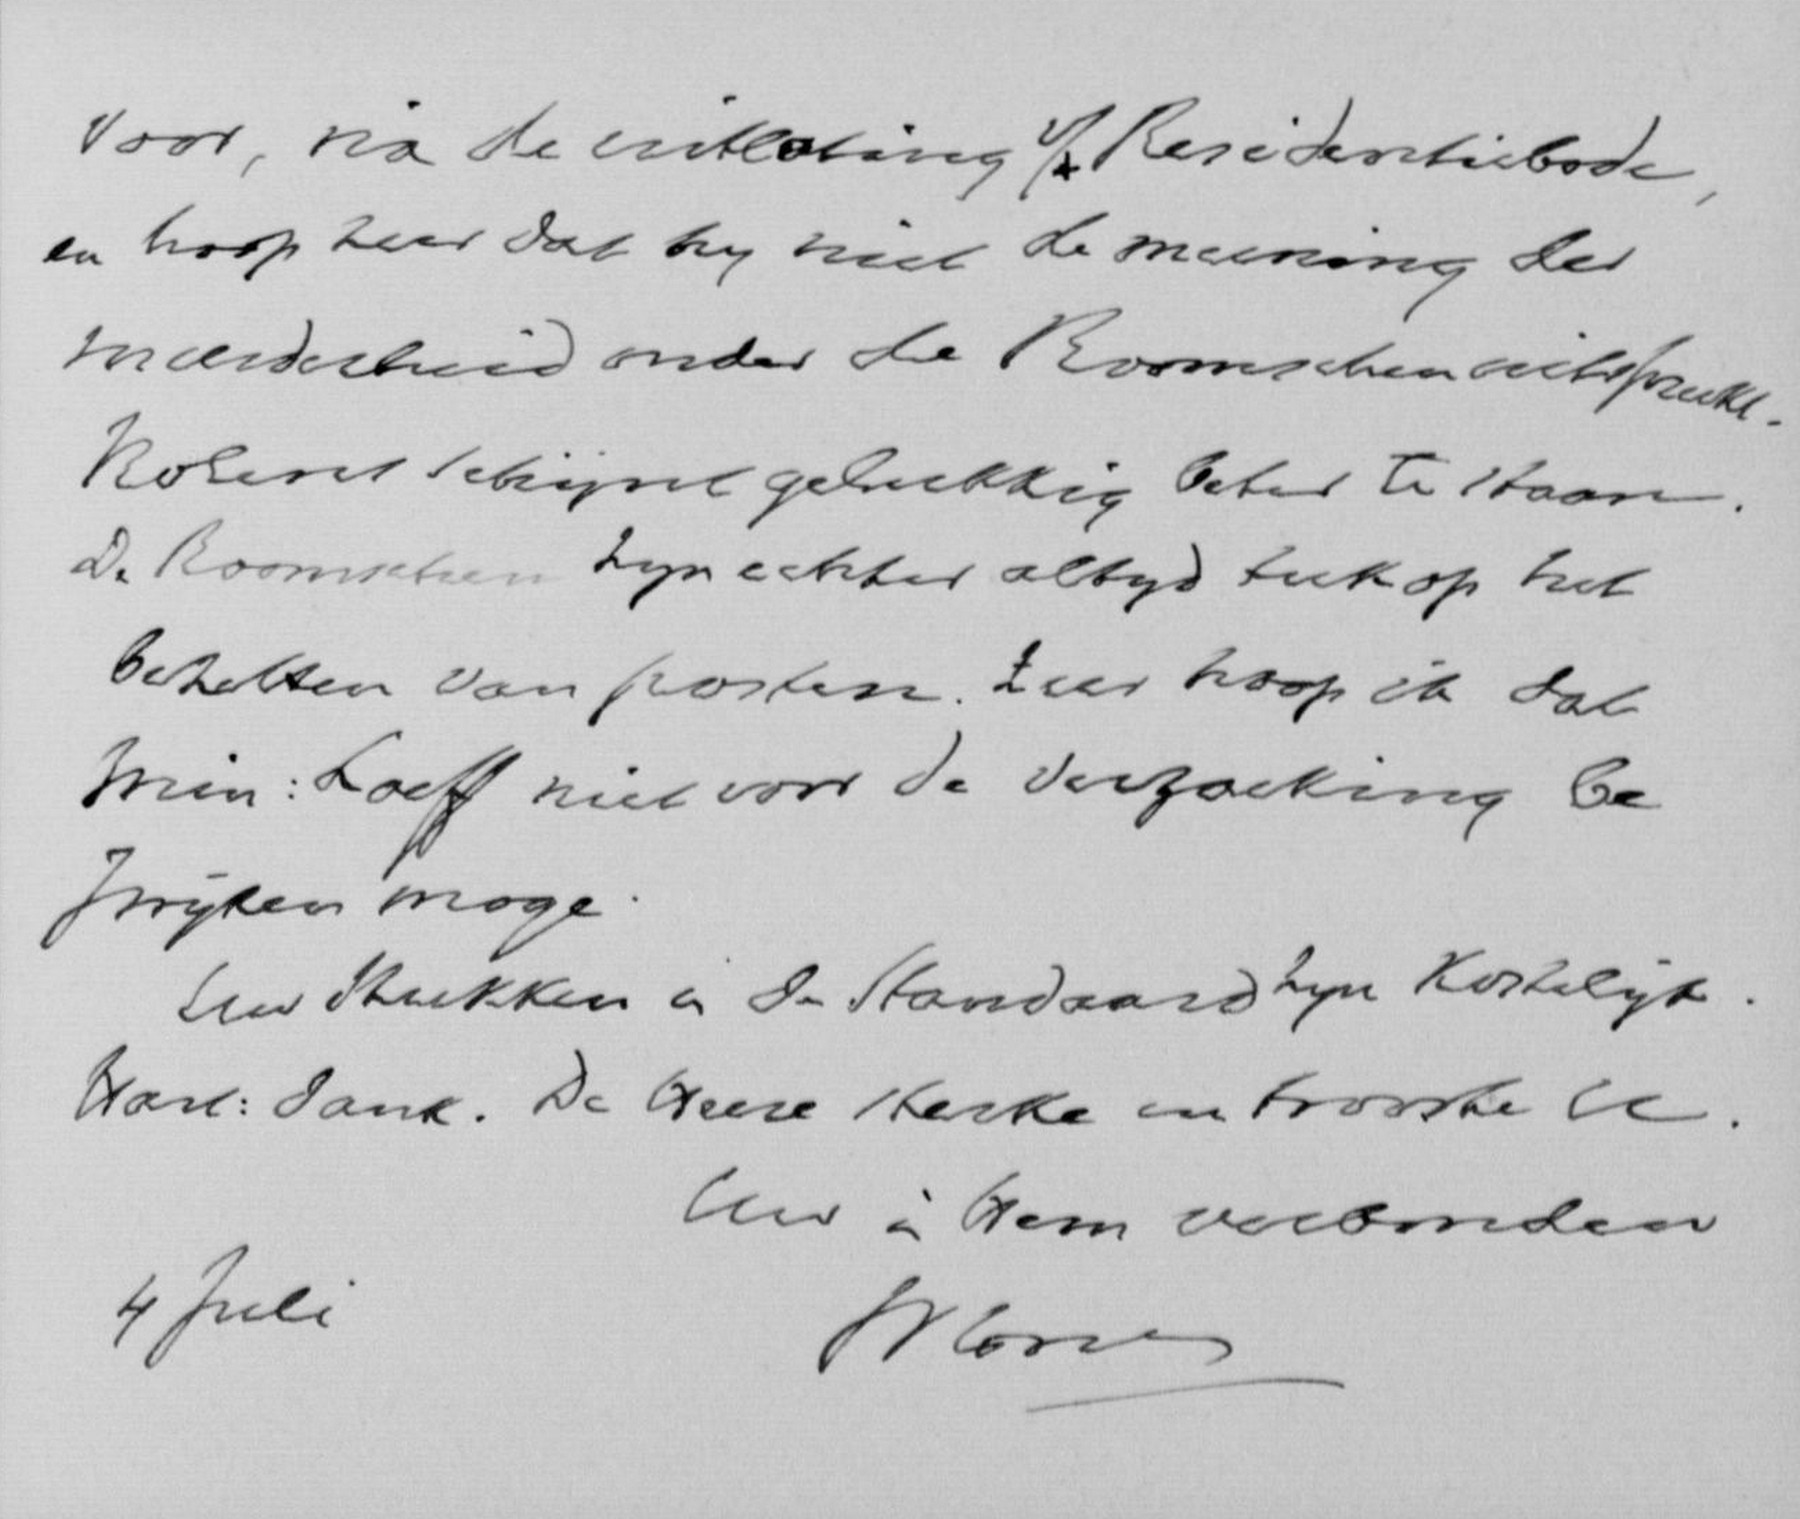 voor, na de uitlating v/d Residentiebode,
en hoop zeer dat hy niet de meening der
meerderheid onder de Roomschen uitspreekt.
schijnt gelukkig beter te staan.
De Roomschen zyn echter altyd tuk op het
bezetten van posten. Zeer hoop ik dat
Min: Loeff niet voor de verzoeking be
zwyken moge.
Uw stukken in de Standaard zyn kostelijk.
Hart: dank. De Heere sterke en trooste U.
Uw in Hem verbonden
4 Juli